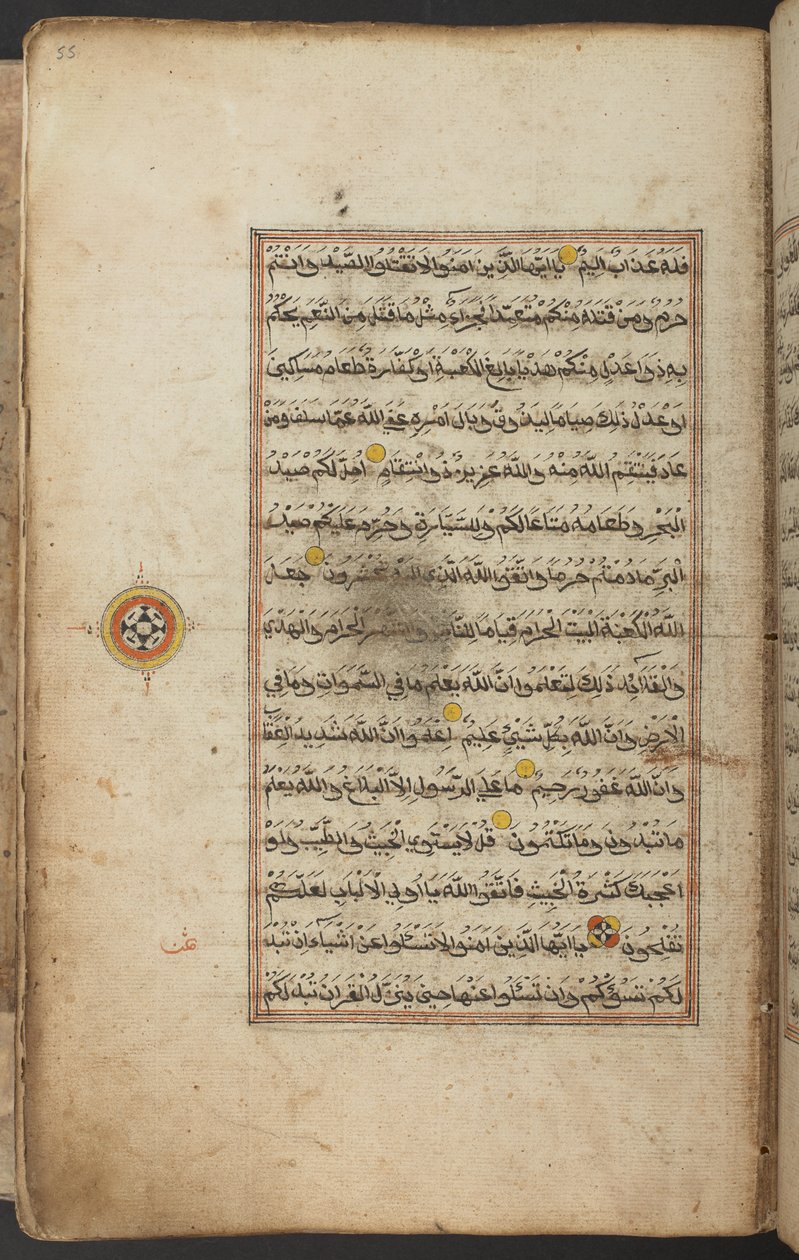 55
فَلَهُ عَذَابٌ اَلِيمٌ يَا اَيُّهَا الَّذِينَ اٰمَنُوا لَا تَقْتُلُوا الصَّيْدَ وَاَنْتُمْ
حُرُمٌ وَمَنْ قَتَلَهُ مِنْكُمْ مُتَعَمِّدًا فَجَزَاءٌ مِثْلُ مَا قَتَلَ مِنَ النَّعَمِ يَحْكُمُ
بِهِ ذَوَا عَدْلٍ مِنْكُمْ هَدْيًا بَالِغَ الْكَعْبَةِ اَوْ كَفَّارَةٌ طَعَامُ مَسَاكِينَ
اَوْ عَدْلُ ذٰلِكَ صِيَامًا لِيَذُوقَ وَبَالَ اَمْرِهِ عَفَي اللّٰهُ عَمَّا سَلَفَ وَمَنْ
عَادَ فَيَنْتَقِمُ اللّٰهُ مِنْهُ وَاللّٰهُ عَزِيزٌ ذُو انْتِقَامٍ اُحِلَّ لَكُمْ صَيْدُ
الْبَحْرِ وَطَعَامُهُ مَتَاعًا لَكُمْ وَلِلسَّيَّارَةِ وَحُرِّمَ عَلَيْكُمْ صَيْدُ
الْبَرِّ مَا دُمْتُمْ حُرُمًا وَاتَّقُوا اللّٰهَ الَّذِي تُحْشَرُونَ جَعَلَ
اللّٰهُ الْكَعْبَةَ الْبَيْتَ الْحَرَامَ قِيَامًا لِلنَّاسِ وَالشَّهْرَ الْحَرَامَ وَالْهَدْيَ
وَالْقَلَائِدَ ذٰلِكَ لِتَعْلَمُوا اَنَّ اللّٰهَ يَعْلَمُ مَا فِي السَّمٰوَاتِ وَمَا فِي
الْاَرْضِ وَاَنَّ اللّٰهَ بِكُلِّ شَيْءٍ عَلِيمٌ اِعْلَمُوا اَنَّ اللّٰهَ شَدِيدُ الْعِقَابِ
وَاَنَّ اللّٰهَ غَفُورٌ رَحِيمٌ مَا عَلَي الرَّسُولِ اِلَّا الْبَلَاغُ وَاللّٰهُ يَعْلَمُ
مَا تُبْدُونَ وَمَا تَكْتُمُونَ قُلْ لَا يَسْتَوِي الْخَبِيثُ وَالطَّيِّبُ وَلَوْ
اَعْجَبَكَ كَثْرَةُ الْخَبِيثِ فَاتَّقُوا اللّٰهَ يَا اُولِي الْاَلْبَابِ لَعَلَّكُمْ
تُفْلِحُونَ يَا اَيُّهَا الَّذِينَ اٰمَنُوا لَا تَسْئَلُوا عَنْ اَشْيَاءَ اِنْ تُبْدَ
لَكُمْ تَسُؤْكُمْ وَاِنْ تَسْئَلُوا عَنْهَا حِينَ يُنَزَّلُ الْقُرْاٰنُ تُبْدَ لَكُمْ